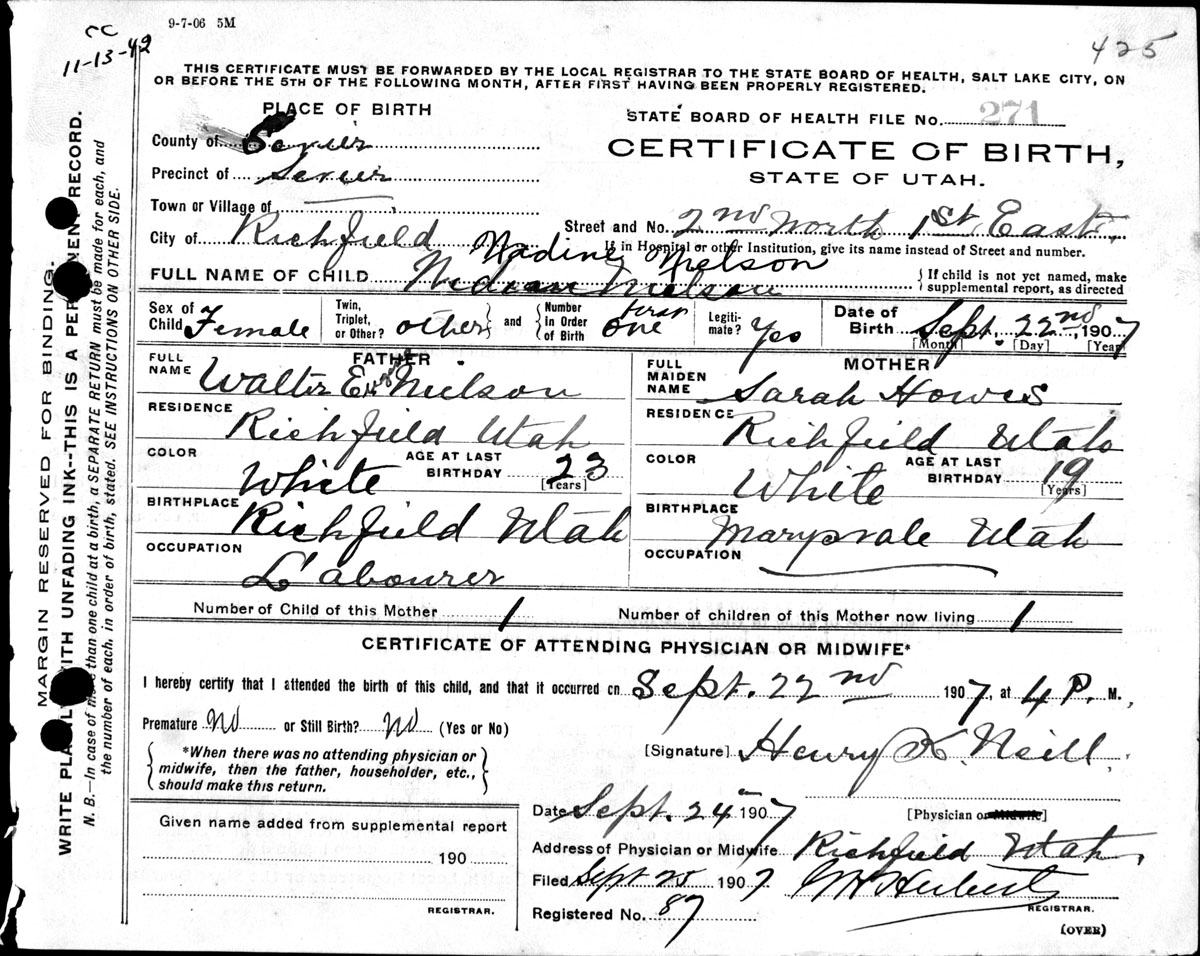 9-7-06 5M
CC
11-13-42
425
THIS CERTIFICATE MUST BE FORWARDED BY THE LOCAL REGISTRAR TO THE STATE BOARD OF HEALTH, SALT LAKE CITY, ON
OR BEFORE THE 5TH OF THE FOLLOWING MONTH, AFTER FIRST HAVING BEEN PROPERLY REGISTERED.
PLACE OF BIRTH
STATE BOARD OF HEALTH FILE No. 271
County of Sevier
CERTIFICATE OF BIRTH,
Precinct of Sevier
STATE OF UTAH.
Town or Village of
Street and No. 2nd North 1st East.
City of Richfield
If in Hospital or other Institution, give its name instead of Street and number.
Nadine Nielson
FULL NAME OF CHILD Nielson
{If child is not yet named, make supplemental report, as directed
Sex of Child Female
Twin, Triplet, or Other? other} and {Number in Order of Birth one
Legitimate? Yes
Date of Birth Sept. 22nd 1907
[Month] [Day] [Year]
FATHER
FULL NAME Walter Eugene Nielson
RESIDENCE Richfield Utah
COLOR White
AGE AT LAST BIRTHDAY 23
[Years]
BIRTHPLACE Richfield Utah
OCCUPATION Labourer
MOTHER
FULL MAIDEN NAME Sarah Howes
RESIDENCE Richfield Utah
COLOR White
AGE AT LAST BIRTHDAY 19
[Years]
BIRTHPLACE Marysvale Utah
OCCUPATION
Number of Child of this Mother 1 Number of children of this Mother now living 1
CERTIFICATE OF ATTENDING PHYSICIAN OR MIDWIFE*
I hereby certify that I attended the birth of this child, and that it occurred on Sept. 22nd 1907, at 4 P. M.
Premature No or Still Birth? No (Yes or No)
*When there was no attending physician or
midwife, then the father, householder, etc.,
should make this return.
[Signature] Henry K. Neill.
[Physician or Midwife]
Date Sept. 24 1907
Address of Physician or Midwife Richfield Utah.
Filed Sept 25 1907
Herbert
REGISTRAR.
Registered No. 87
(OVER)
Given name added from supplemental report
190
REGISTRAR.
MARGIN RESERVED FOR BINDING.
WRITE PLAINLY WITH UNFADING INK--THIS IS A PERMANENT RECORD.
N. B.—In case of more than one child at a birth, a SEPARATE RETURN must be made for each, and
the number of each, in order of birth, stated. SEE INSTRUCTIONS ON OTHER SIDE.